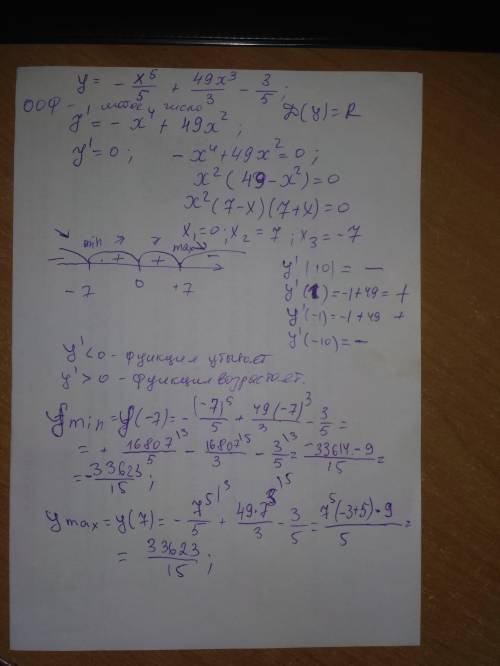 y = - x⁵/5 + 49x³/3 - 3/5 ;
ООФ - любое число Д(y) = R
y' = - x⁴ + 49x² ;
y' = 0 ; - x⁴ + 49x² = 0 ;
x² ( 49 - x² ) = 0
x² (7 - x) (7 + x) = 0
x₁ = 0 ; x₂ = 7 ; x₃ = -7
min max
- + + -
-7 0 +7
y' |10| = -
y' (1) = -1 + 49 = +
y' (-1) = -1 + 49 +
y' (-10) = -
y' < 0 - функция убывает
y' > 0 - функция возрастает.
y min = y(-7) = - (-7)⁵/5 + 49(-7)³/3 - 3/5 =
= + 16807|³/5 - 16807|⁵/3 - 3|³/5 = -33614 - 9/15 =
= - 33623/15 ;
y max = y(7) = - 7⁵|³/5 + 49·7³|⁵/3 - 3/5 = 7⁵(-3+5) · 9/5 =
= 33623/15 ;